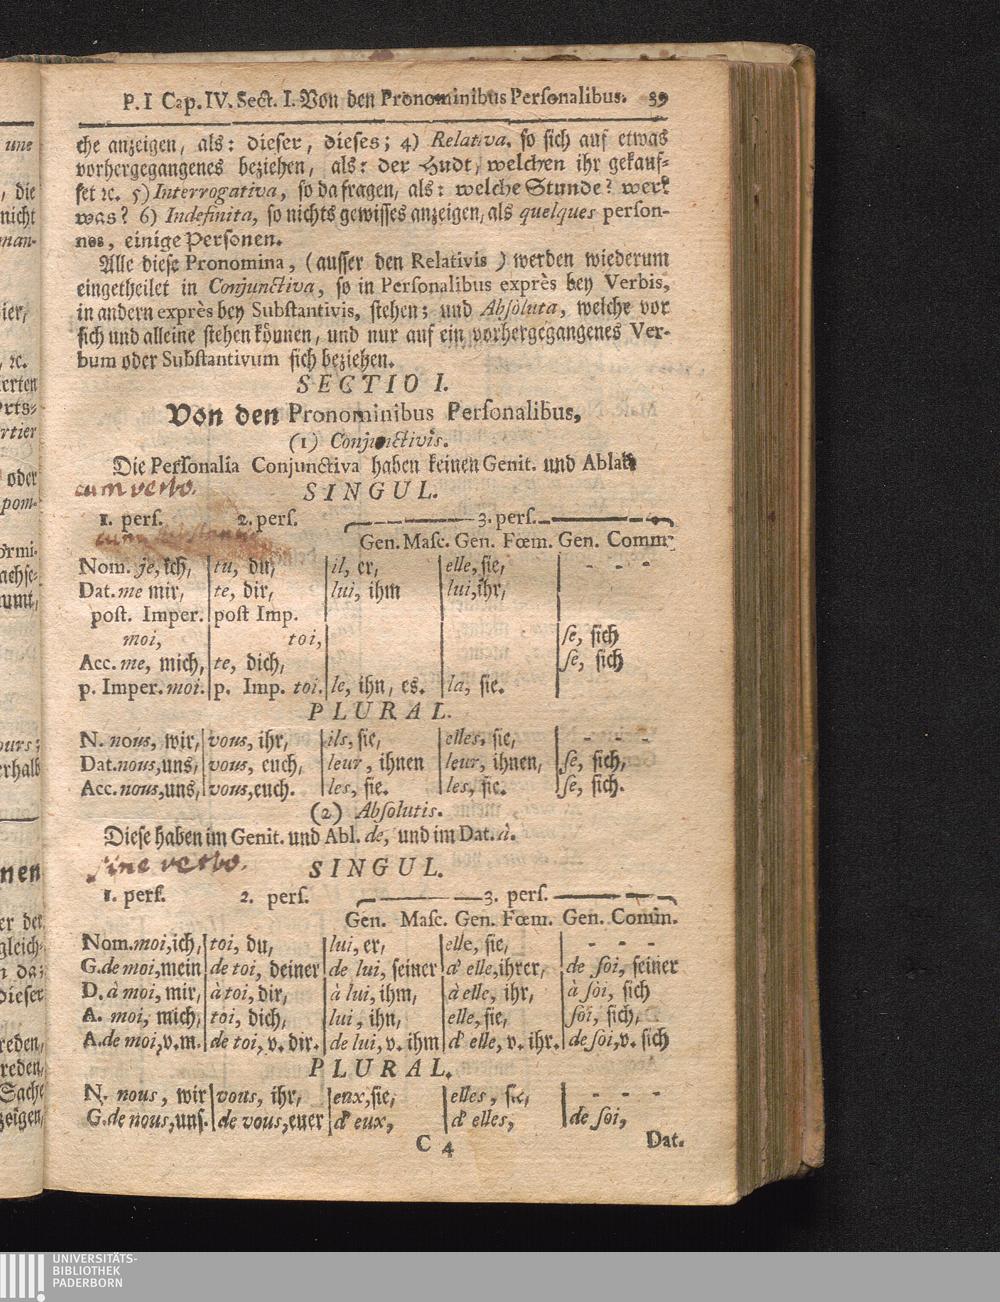 P. I Cap. IV. Sect. I. Von den Pronominibus Personalibus. 39
che anzeigen, als: dieser, dieses; 4) Relativa, so sich auf etwas
vorhergegangenes beziehen, als: der Hudt, welchen ihr gekauf-
fet ꝛc. 5) Interrogativa, so da fragen, als: welche Stunde? wer?
was? 6) Indefinita, so nichts gewisses anzeigen, als quelques person-
nes, einige Personen.
Alle diese Pronomina, (ausser den Relativis) werden wiederum
eingetheilet in Conjunctiva, so in Personalibus exprès bey Verbis,
in andern exprès bey Substantivis, stehen; und Absoluta, welche vor
sich und alleine stehen können, und nur auf ein vorhergegangenes Ver-
bum oder Substantivum sich beziehen.
SECTIO I.
Von den Pronominibus Personalibus,
(1) Conjunctivis.
Die Personalia Conjunctiva haben keinen Genit. und Ablat.
cum verbo.
SINGUL.
1. pers. 2. pers. 3. pers.
Gen. Masc. Gen. Fœm. Gen. Comm.
Nom. je, ich, tu, du, il, er, elle, sie, - - -
Dat. me mir, te, dir, lui, ihm lui, ihr,
post. Imper. post Imp.
moi, toi, se, sich
Acc. me, mich, te, dich, se, sich
p. Imper. moi. p. Imp. toi. le, ihn, es. la, sie.
PLURAL.
N. nous, wir, vous, ihr, ils, sie, elles, sie, - - -
Dat. nous, uns, vous, euch, leur, ihnen leur, ihnen, se, sich,
Acc. nous, uns, vous, euch. les, sie. les, sie. se, sich.
(2) Absolutis.
Diese haben im Genit. und Abl. de, und im Dat. à.
sine verbo.
SINGUL.
1. pers. 2. pers. 3. pers.
Gen. Masc. Gen. Fœm. Gen. Comm.
Nom. moi, ich, toi, du, lui, er, elle, sie, - - -
G. de moi, mein de toi, deiner de lui, seiner d'elle, ihrer, de soi, seiner
D. à moi, mir, à toi, dir, à lui, ihm, à elle, ihr, à soi, sich
A. moi, mich, toi, dich, lui, ihn, elle, sie, soi, sich,
A. de moi, v. m. de toi, v. dir. de lui, v. ihm d'elle, v. ihr. de soi, v. sich
PLURAL.
N. nous, wir vous, ihr, eux, sie, elles, sie, - - -
G. de nous, uns. de vous, euer d'eux, d'elles, de soi,
C 4 Dat.
UNIVERSITÄTS-
BIBLIOTHEK
PADERBORN